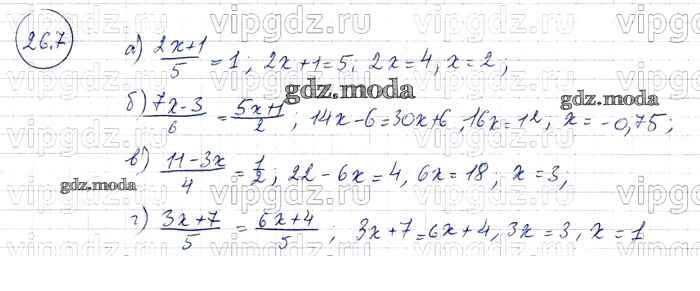 vipgdz.ru vipgdz.ru vipgdz.ru vipgdz.ru
26.7
а) (2x+1)/5 = 1; 2x+1=5, 2x=4, x=2;
gdz.moda
б) (7x-3)/6 = (5x+1)/2; 14x-6=30x+6, 16x=12, x=-0,75;
gdz.moda
в) (11-3x)/4 = 1/2; 22-6x=4, 6x=18; x=3,
gdz.moda
г) (3x+7)/5 = (6x+4)/5; 3x+7=6x+4, 3x=3, x=1
vipgdz.ru vipgdz.ru vipgdz.ru vipgdz.ru